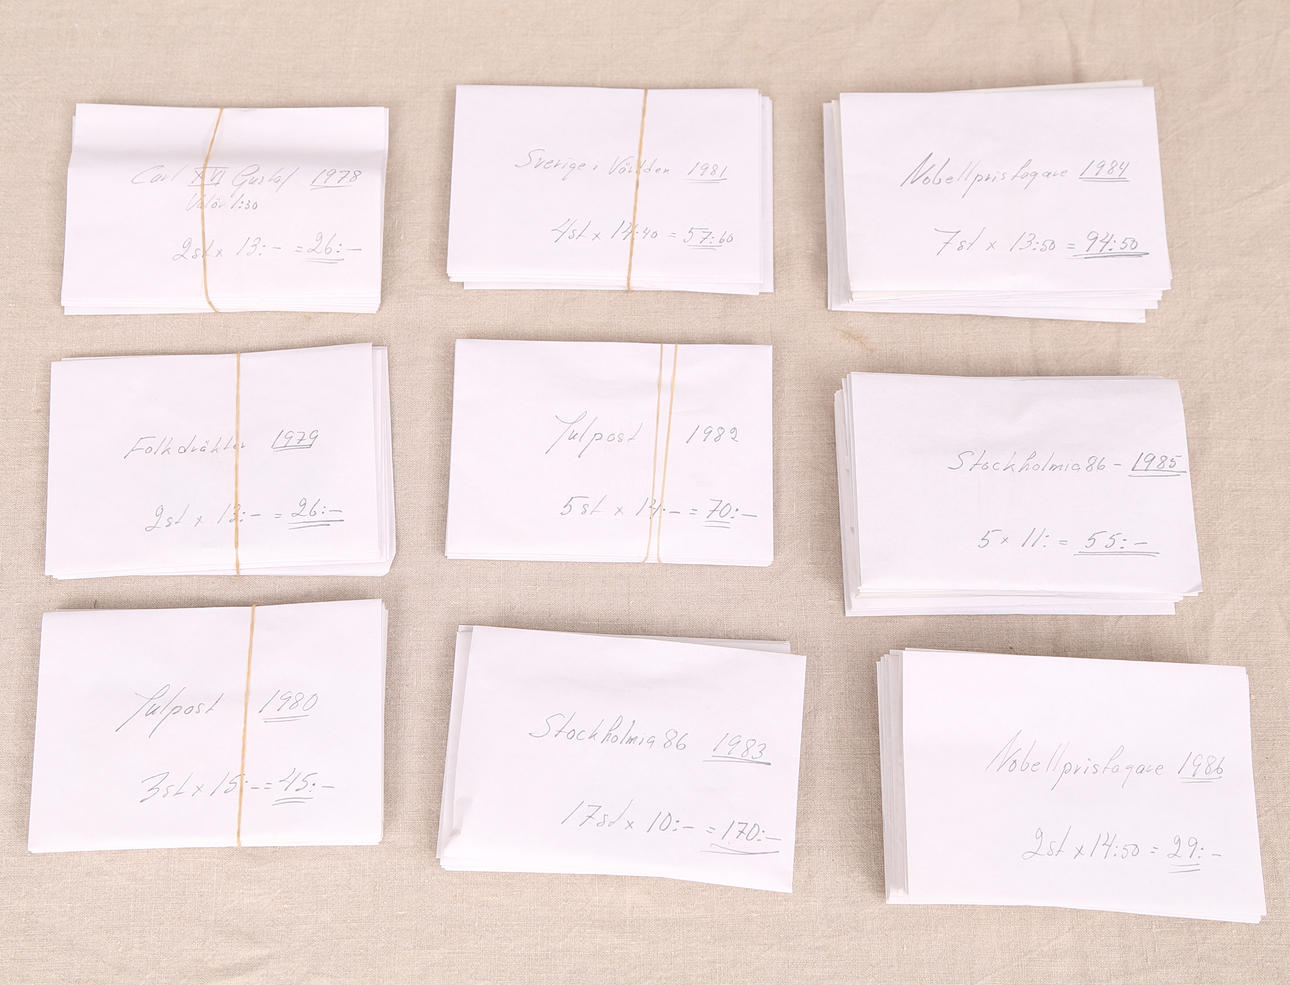 Carl XVI Gustaf 1978
Valör 1:30
2st x 13:- = 26:-
Folkdräkter 1979
2st x 13:- = 26:-
Julpost 1980
3st x 15:- = 45:-
Sverige i Världen 1981
4st x 14:40 = 57:60
Julpost 1982
5st x 14:- = 70:-
Stockholmia 86 1983
17st x 10:- = 170:-
Nobellpristagare 1984
7st x 13:50 = 94:50
Stockholmia 86 - 1985
5 x 11: = 55:-
Nobellpristagare 1986
2st x 14:50 = 29:-